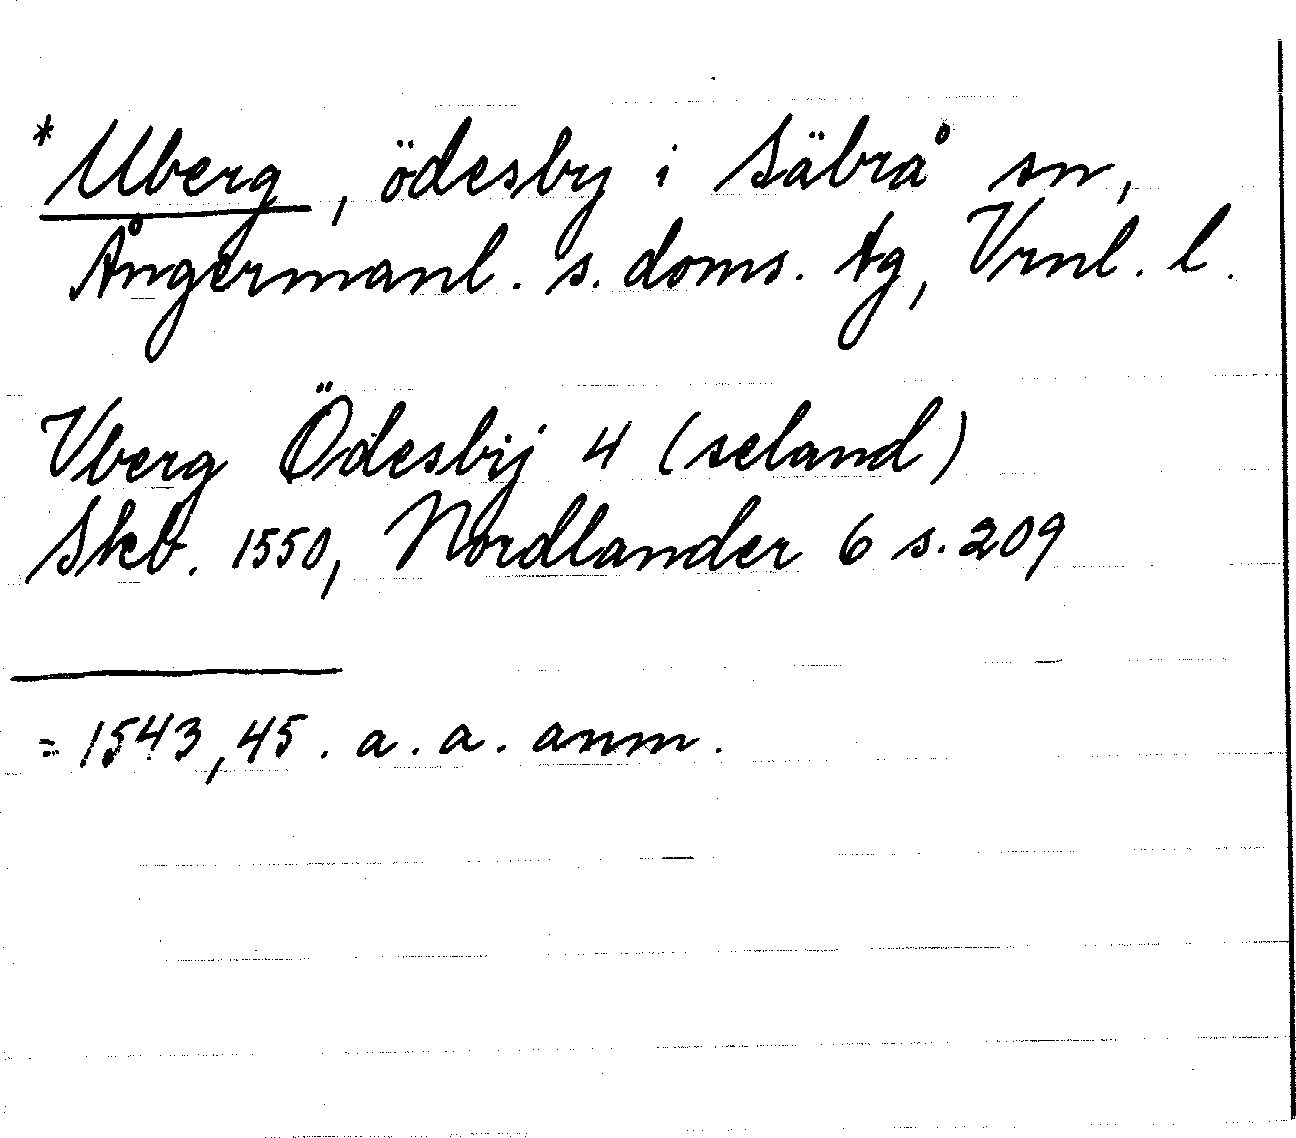 *Uberg, ödesby i Säbrå sn,
Ångermanl. s. doms. tg, Vrnl. l.
Vberg Ödesbij 4 (seland)
Skb. 1550, Nordlander 6 s. 209
= 1543, 45. a. a. anm.